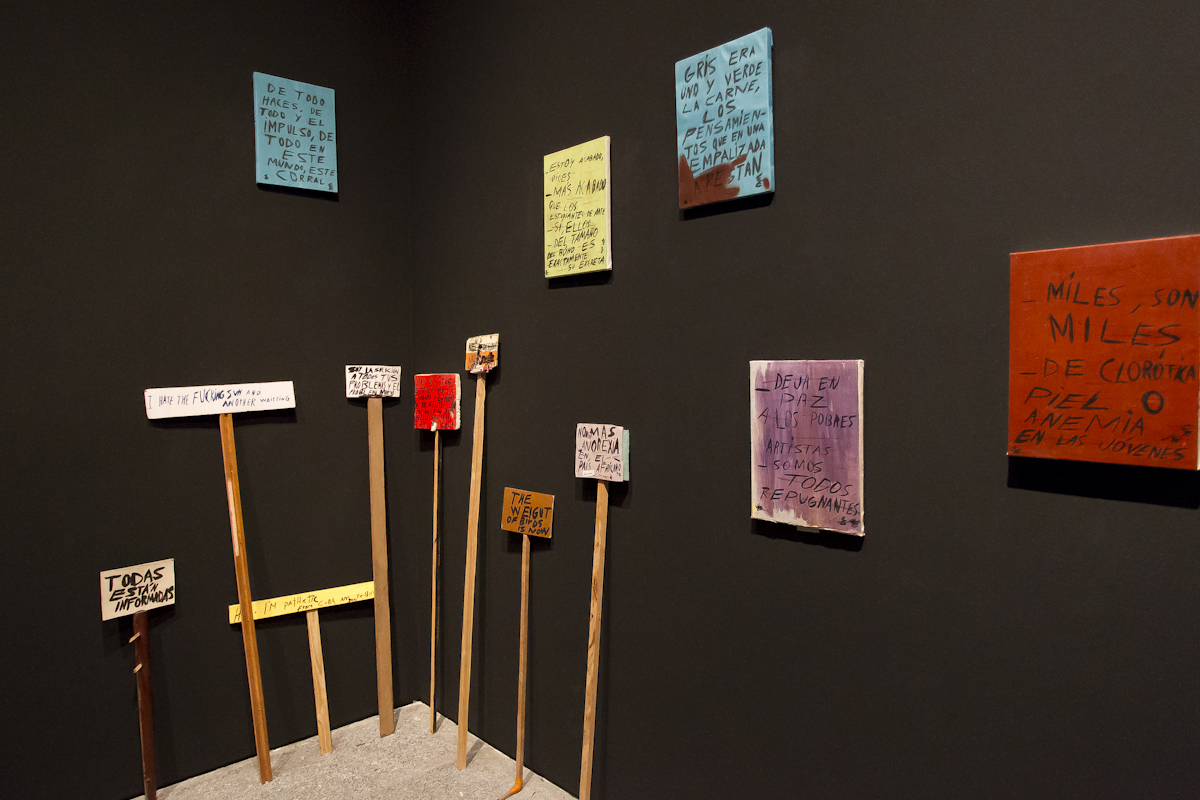 DE TODO
HACES, DE
TODO Y EL
IMPULSO, DE
TODO EN
ESTE
MUNDO, ESTE
CORRAL
_ESTOY ACABADO,
DICES
_MAS ACABADO
QUE LOS
ESTUDIANTES DE ARTE
_SI, ELLOS
_DEL TAMAÑO
ES
EXACTAMENTE
SU
GRIS ERA
UNO Y VERDE
LA CARNE,
LOS
PENSAMIEN-
TOS QUE EN UNA
EMPALIZADA
APESTAN
_ MILES, SON
MILES
_ DE CLORÓTICA
PIEL O
ANEMIA
EN LAS JÓVENES
_DEJA EN
PAZ
A LOS POBRES
ARTISTAS
_SOMOS
TODOS
REPUGNANTES
I HATE THE FUCKING SUN AND
ANOTHER WAITING
SOY LA SOLUCION
A TODOS TUS
PROBLEMAS Y EL
NO MAS
ANOREXIA
EN EL
PAIS AFRICANO
THE
WEIGHT
OF BIRDS
IS NOW
TODAS
ESTÁN
INFORMADAS
I'M PATHETIC
FROM CUBA AND